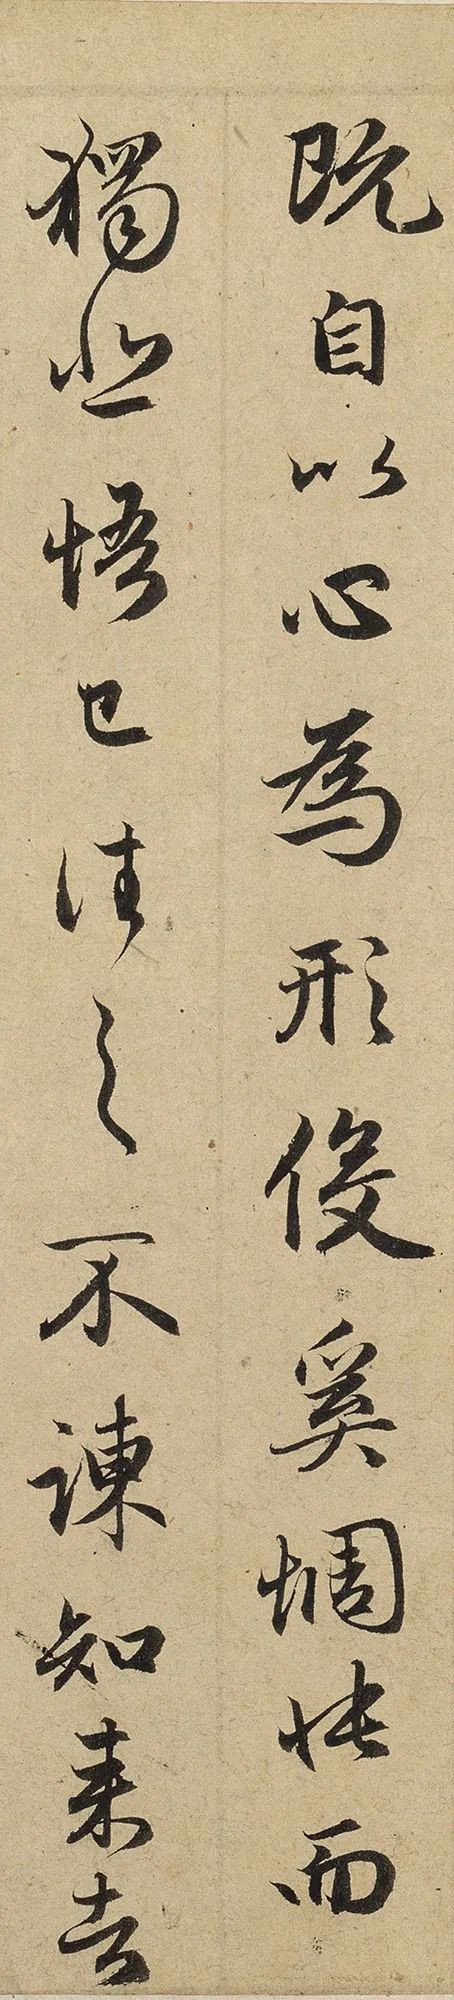 既自以心為形伇奚惆悵而
獨悲悟已往之不諫知来者